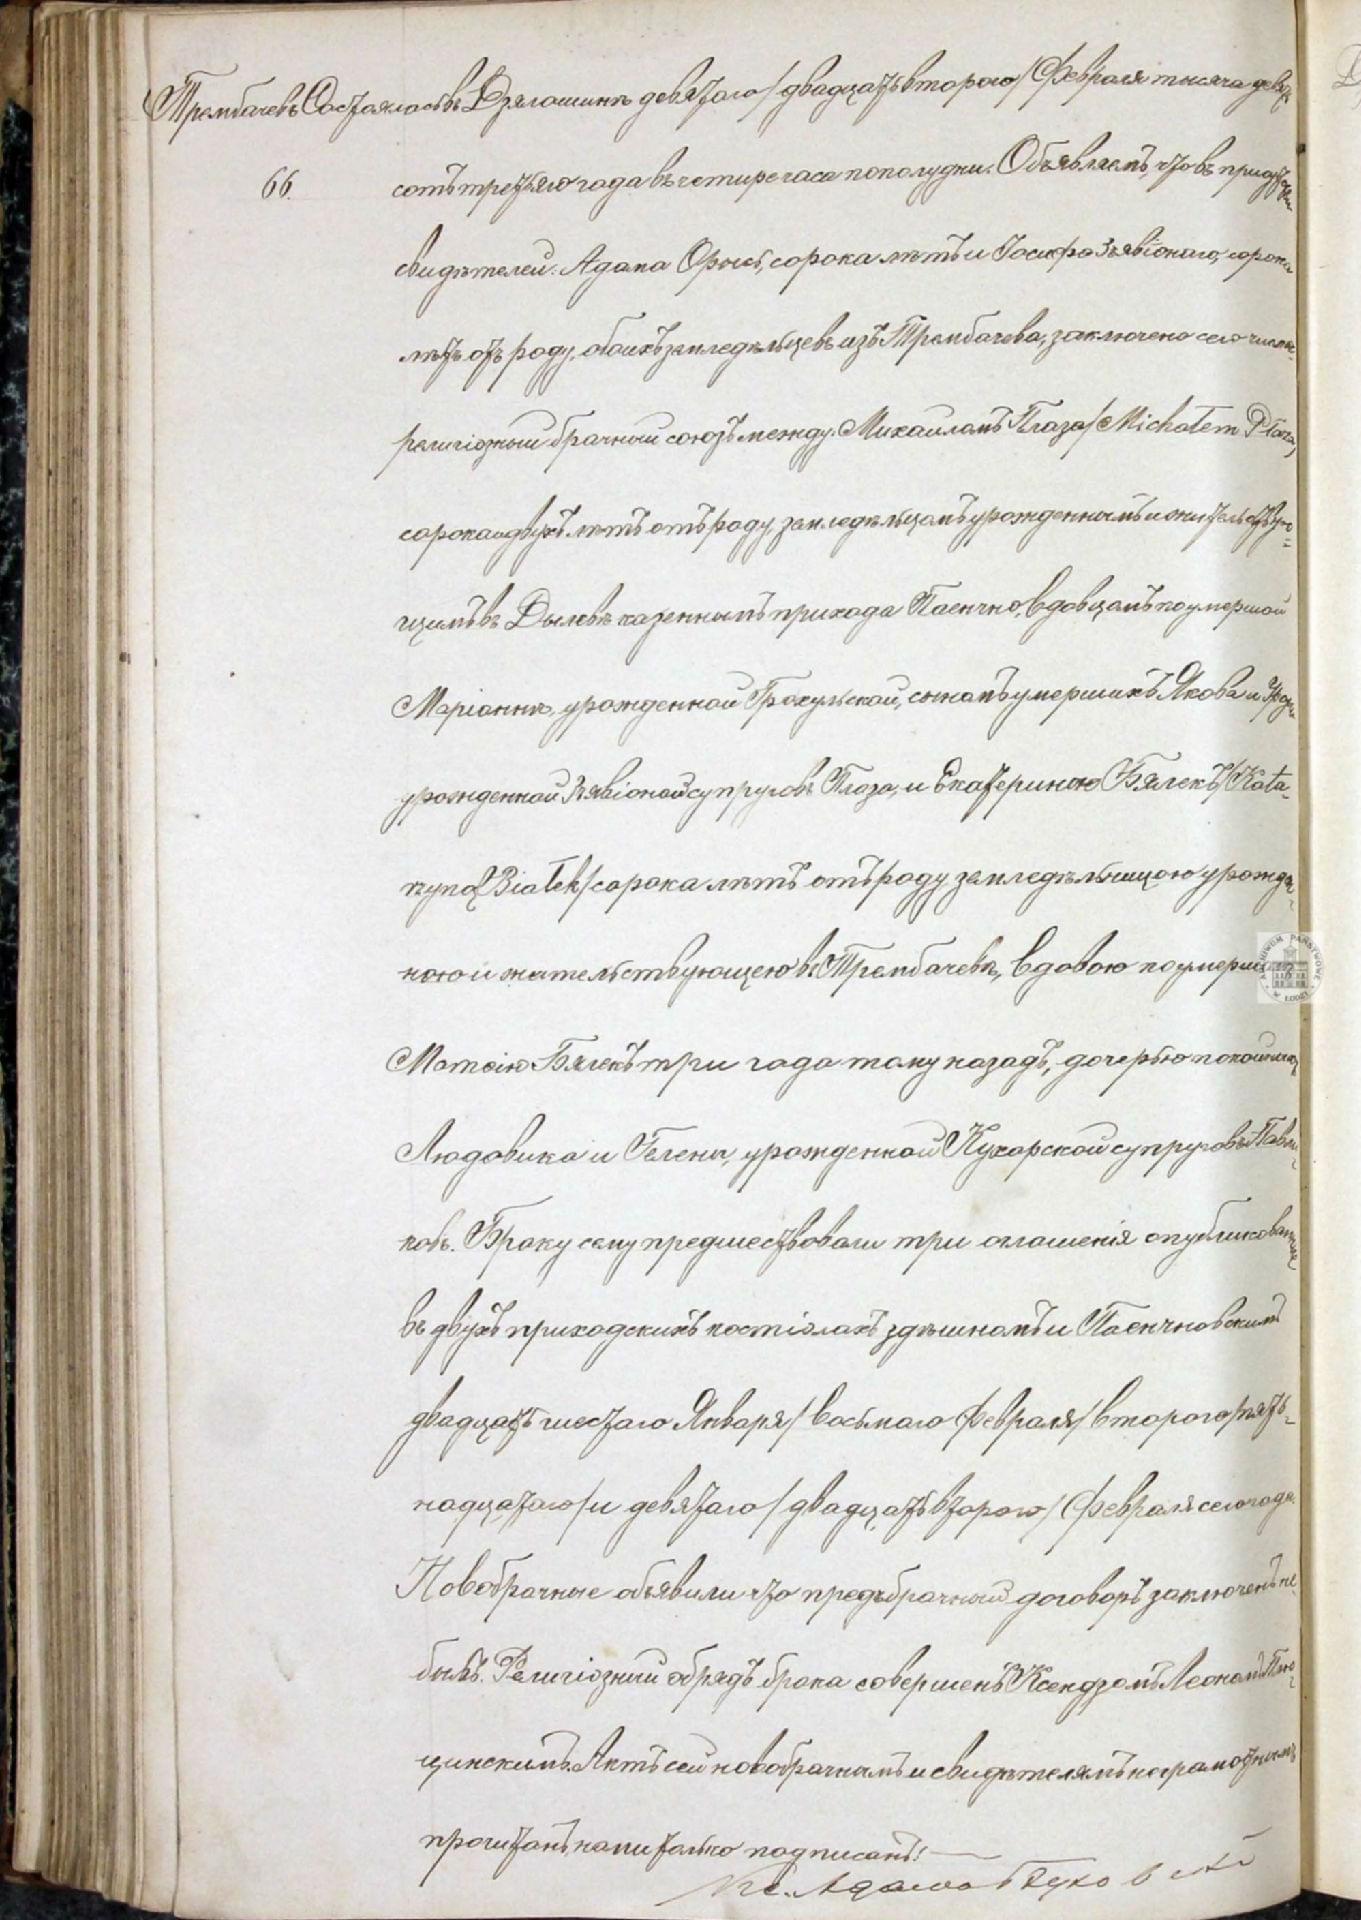 Трембачевъ Состоялось въ Дзялошинѣ девятаго /двадцать второго/ Февраля тысяча девять
66. сотъ третьяго года въ четыре часа пополудни. Объявляемъ, что въ присутствіи
свидѣтелей: Адама сорока лѣтъ и Іосифа Зъявіонаго, сорока
лѣтъ отъ роду, обоихъ земледѣльцевъ изъ Трембачева, заключено сего числа
религіозный брачный союзъ между: Михаиломъ Плаза /Michałem Płaza/
сорока двухъ лѣтъ отъ роду, земледѣльцомъ урожденнымъ и жительствую=
щимъ въ Дыловѣ казенномъ прихода Паенчно, вдовцомъ по умершой
Маріаннѣ, урожденной Грохульской, сыномъ умершихъ Якова и
урожденной Зъявіоной супруговъ Плаза, и Екатериною Бялекъ /Kata-
rzyną Białek/ сорока лѣтъ отъ роду земледѣльницою урожден-
ною и жительствующею въ Трембачевѣ, вдовою по умершемъ
Матѳію Бялекъ три года тому назадъ, дочерью покойныхъ
Людовика и Гелены, урожденной Кухарской супруговъ Павли-
ковъ. Браку сему предшествовали три оглашенія опубликованныя
въ двухъ приходскихъ костіолахъ здѣшномъ и Паенчновскимъ
двадцать шестаго Января /восьмаго Февраля/ второго /пят-
надцатаго/ и девятаго /двадцать второго/ Февраля сего года.
Новобрачные объявили что предъбрачный договоръ заключенъ не
былъ. Религіозный обрядъ брака совершенъ Ксендзомъ Леономъ
щинскимъ. Актъ сей новобрачнымъ и свидѣтелямъ неграмотнымъ
прочитанъ, нами только подписанъ! —
Кс. Адамъ
ARCHIWUM PAŃSTWOWE W ŁODZI